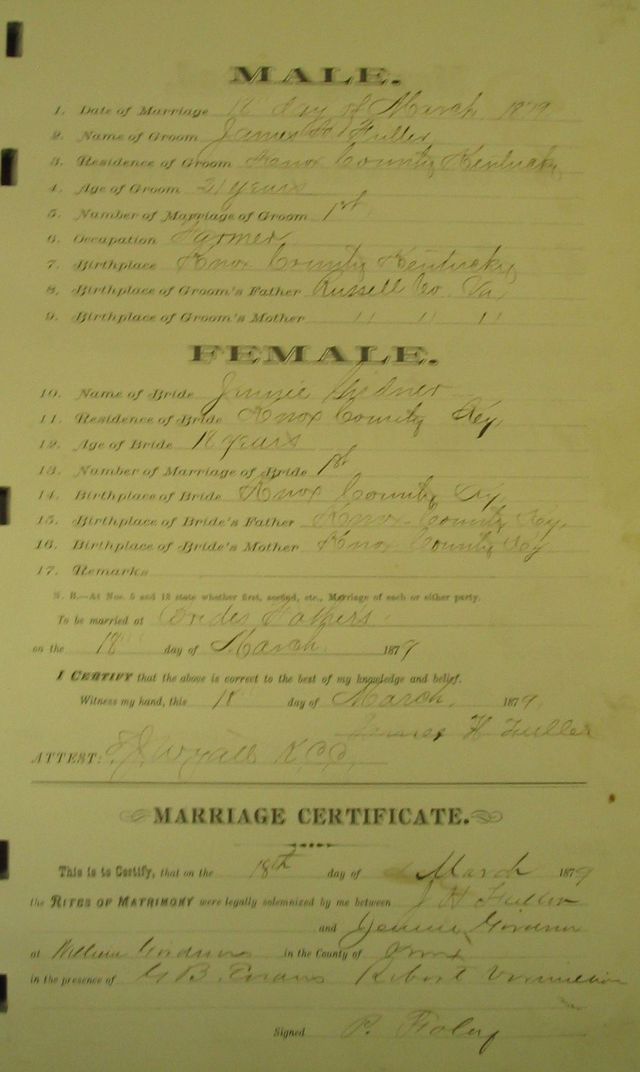 MALE.
1. Date of Marriage 18" day of March 1879
2. Name of Groom James H Fuller
3. Residence of Groom Knox County Kentucky
4. Age of Groom 21 years
5. Number of Marriage of Groom 1st
6. Occupation Farmer
7. Birthplace Knox County Kentucky
8. Birthplace of Groom's Father Russell Co. Va
9. Birthplace of Groom's Mother " " "
FEMALE.
10. Name of Bride Jennie
11. Residence of Bride Knox County Ky
12. Age of Bride 18 years
13. Number of Marriage of Bride 1st
14. Birthplace of Bride Knox County Ky
15. Birthplace of Bride's Father Knox County Ky.
16. Birthplace of Bride's Mother Knox County Ky
17. Remarks
N. B.—At Nos. 5 and 13 state whether first, second, etc., Marriage of each or either party.
To be married at Brides Fathers
on the 18 day of March 1879
I CERTIFY that the above is correct to the best of my knowledge and belief.
Witness my hand, this 18 day of March, 1879.
James H Fuller
ATTEST:
MARRIAGE CERTIFICATE.
This is to Certify, that on the 18th day of March 1879
the RITES OF MATRIMONY were legally solemnized by me between J H Fuller
and Jennie
at William in the County of Knox
in the presence of G B. Evans Robert Vermillion
Signed